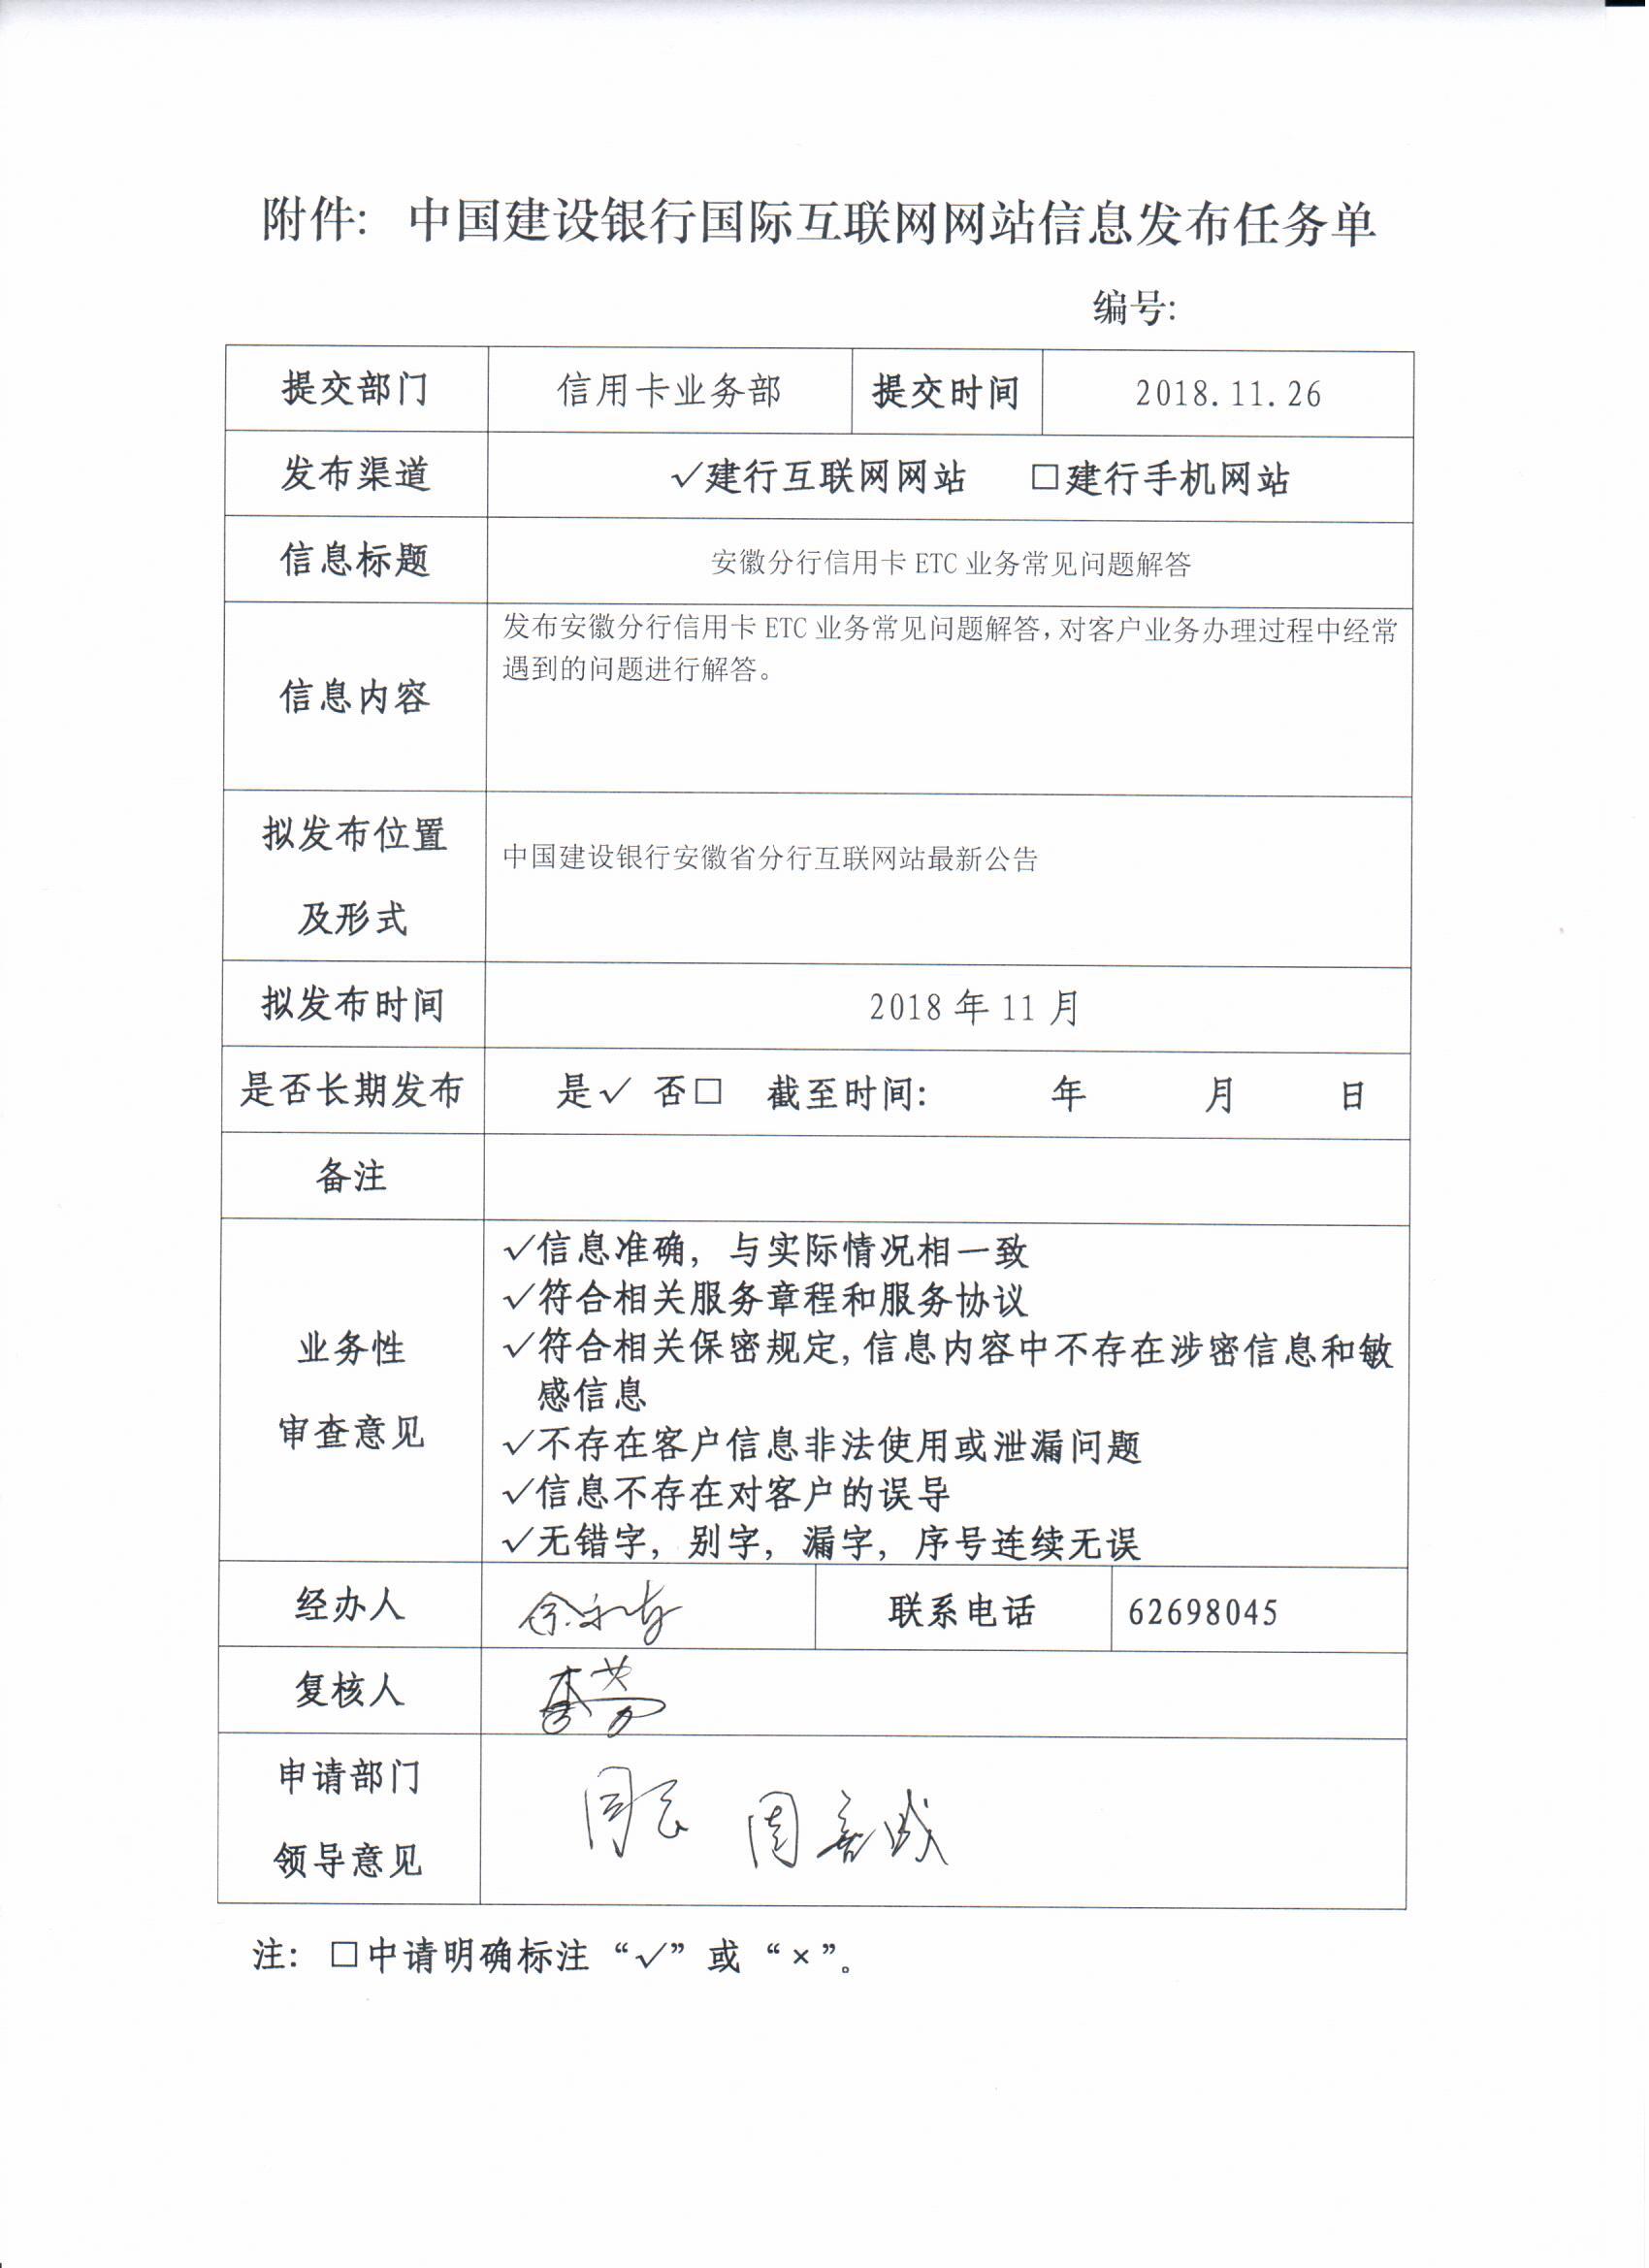 附件: 中国建设银行国际互联网网站信息发布任务单
编号:
提交部门 信用卡业务部 提交时间 2018.11.26
发布渠道 √建行互联网网站 □建行手机网站
信息标题 安徽分行信用卡 ETC 业务常见问题解答
信息内容
发布安徽分行信用卡 ETC 业务常见问题解答,对客户业务办理过程中经常
遇到的问题进行解答。
拟发布位置
及形式
中国建设银行安徽省分行互联网站最新公告
拟发布时间 2018 年 11 月
是否长期发布 是√ 否□ 截至时间: 年 月 日
备注
业务性
审查意见
√信息准确, 与实际情况相一致
√符合相关服务章程和服务协议
√符合相关保密规定,信息内容中不存在涉密信息和敏
感信息
√不存在客户信息非法使用或泄漏问题
√信息不存在对客户的误导
√无错字, 别字, 漏字, 序号连续无误
经办人 联系电话 62698045
复核人
申请部门
领导意见
注: □中请明确标注 “√” 或 “×”。